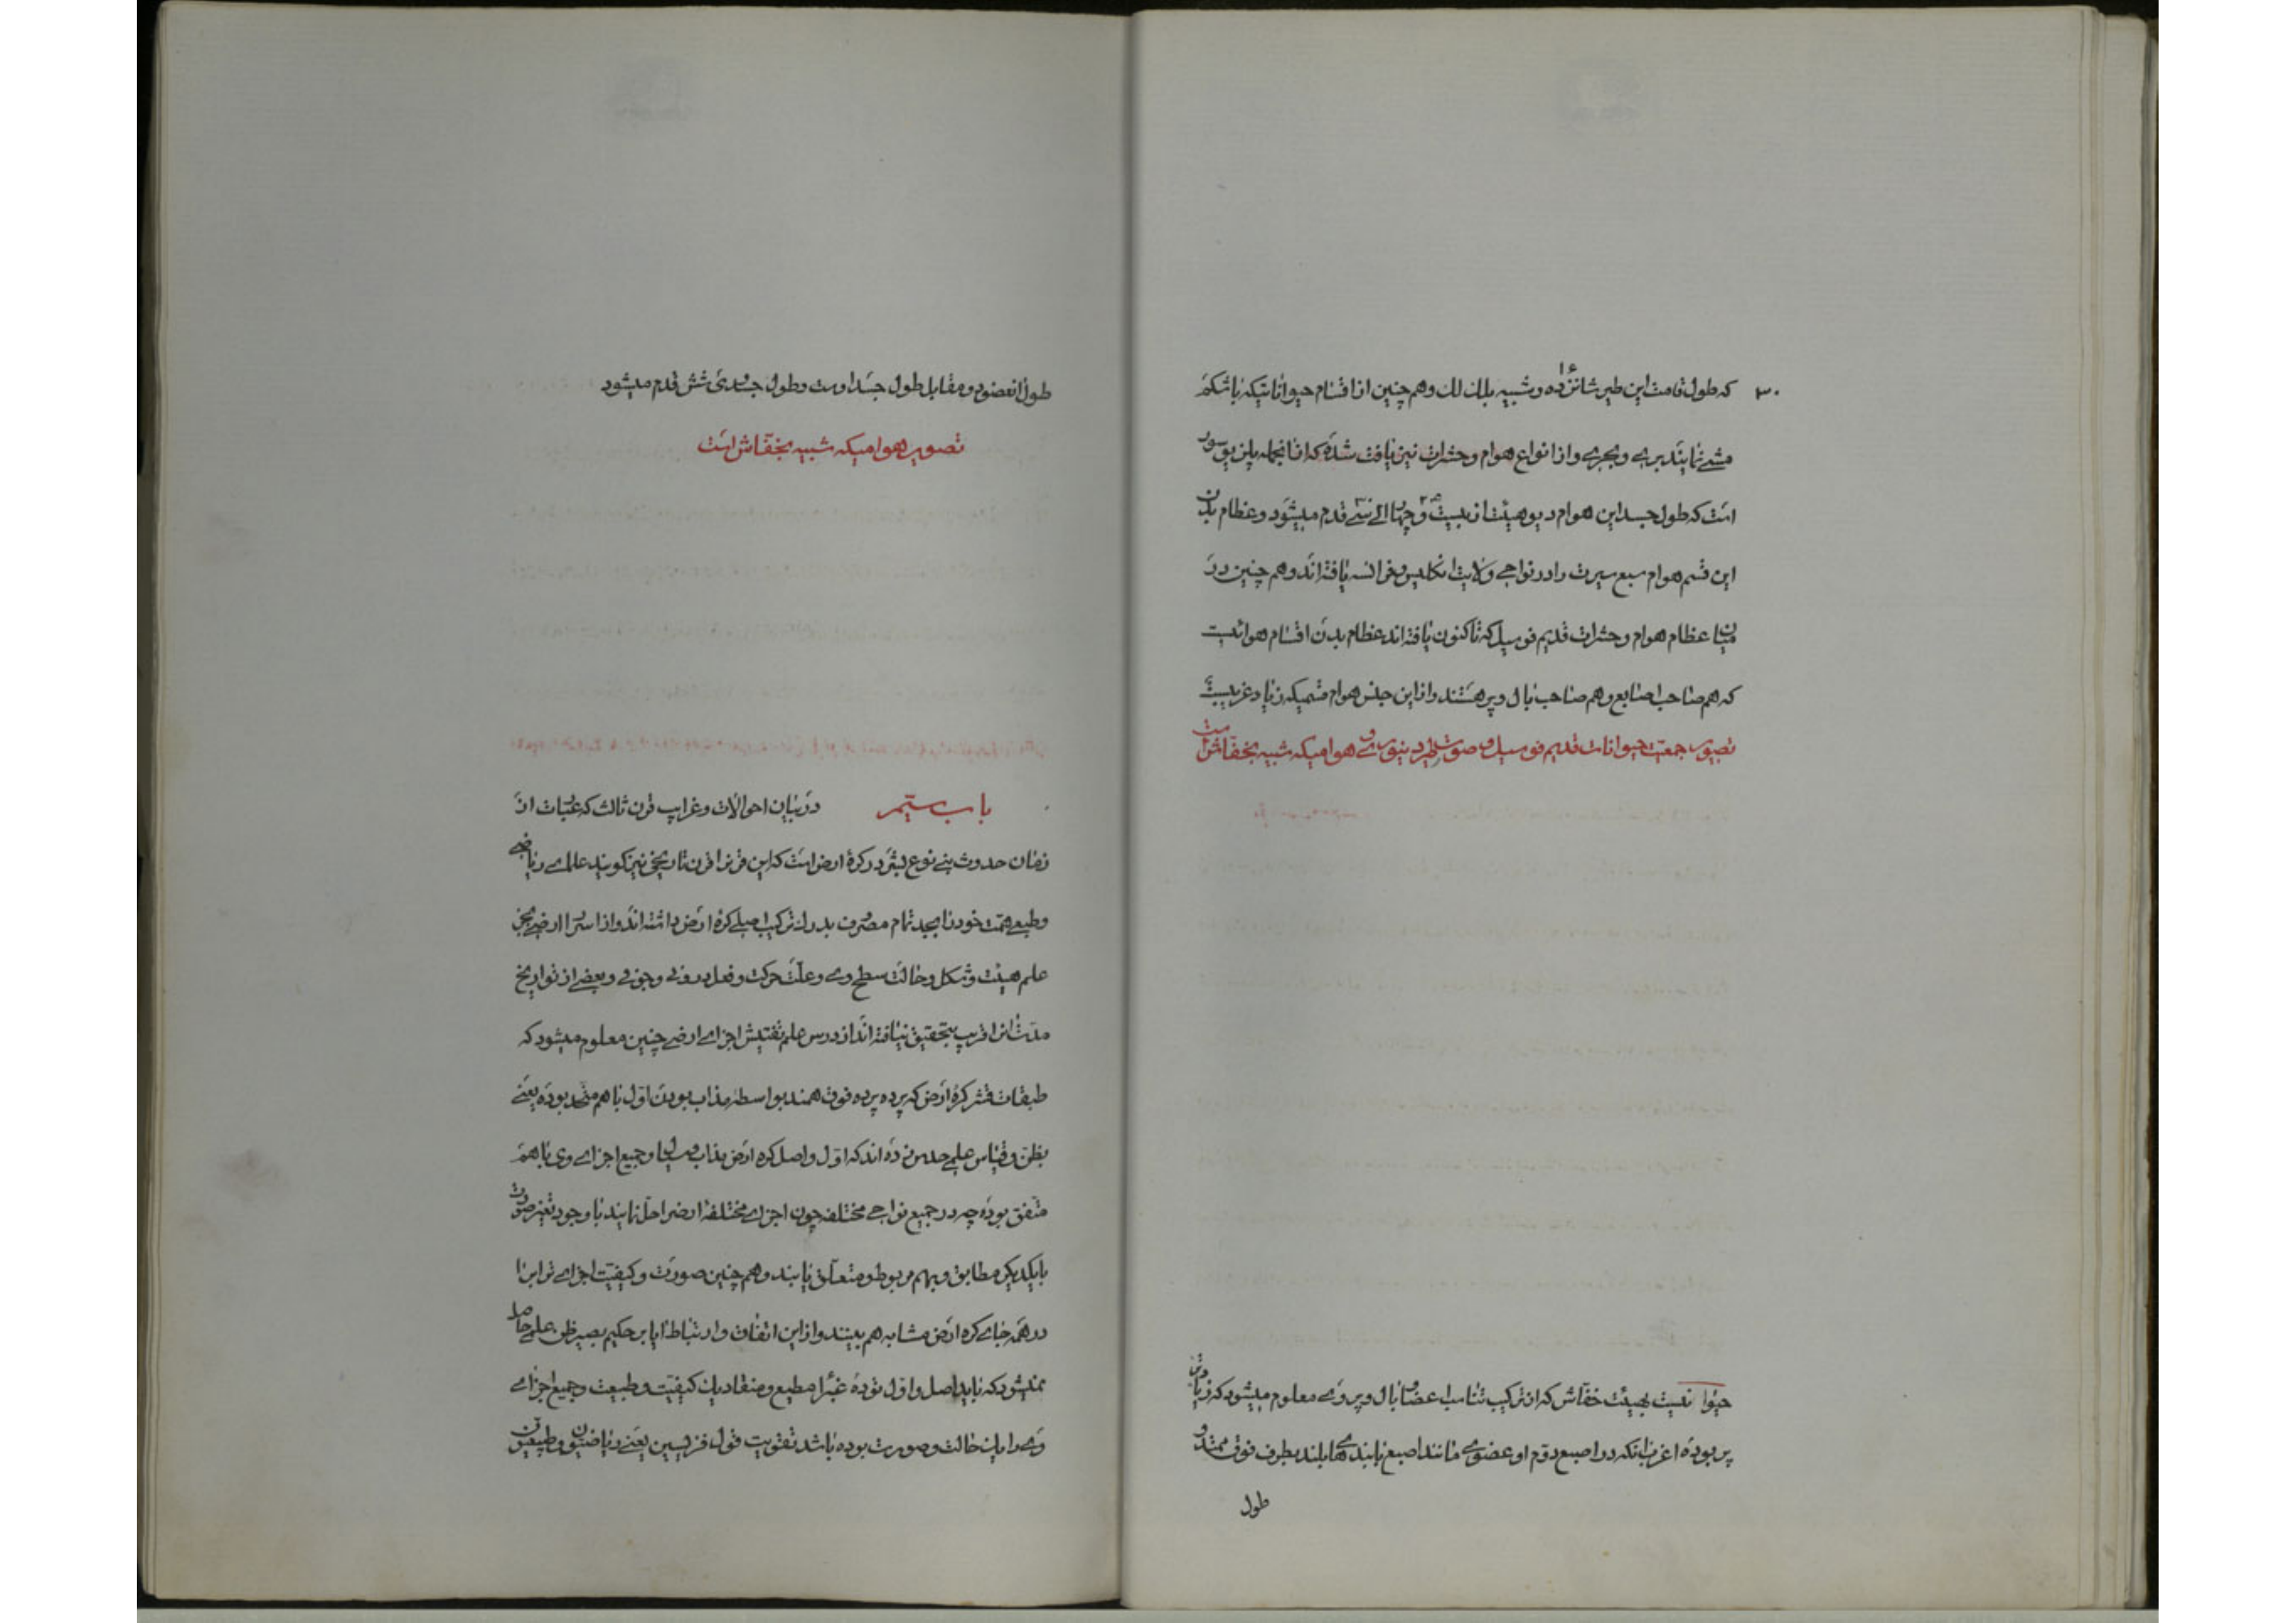 ۳۰
که طول قامت این طیر شانزده ۱۶ و شبیه بلک لک و هم چنین از اقسام حیواناتیکه باشکم
مشی نمایند بری و بحری و از انواع هوام و حشرات نیز یافت شده که از انجمله
است که طول جسد این هوام دیو هیئت از بیست و چهار الی سی قدم میشود و عظام بدن
این قسم هوام سبع سیرت را در نواحی ولایت انکلیس و فرانسه یافته اند و هم چنین در
میان عظام هوام و حشرات قدیم فوسیل که تاکنون یافته اند عظام بدن اقسام هوائیست
که هم صاحب اصابع و هم صاحب بال و پر هستند و از این جنس هوام قسمیکه زیاد غریبست
تصویر جمعیت حیوانات قدیم فوسیل و صورت طیر دینوری و هوامیکه شبیه بخفاش است
حیوانیست بهیئت خفاش که از ترکیب تناسب اعضا و بال و پر وی معلوم میشود که زیاد
پر بوده اغرب انکه در اصبع دوم او عضوی مانند اصبع یابند های بلند بطرف فوق ممتد و
طول
طول انعضو در مقابل طول جسد اوست و طول جسدی شش قدم میشود
تصویر هوامیکه شبیه بخفاش است
باب ستیم در بیان احوالات و غرایب قرن ثالث که عبارت از
زمان حدوث بنی نوع بشر در کرهٔ ارض است که این قرنرا قرن تاریخی نیز کویند علمای ریاضی
و طبیعی همت خود را بجد تمام مصروف بدرک ترکیب اصلی کره ارض داشته اند و از اسرار ارضی بجز
علم هیئت و شکل و حالت سطح وی و علت حرکت و فعل درونی و جوفی و بعضی از تواریخ
مدت انرا قریب بتحقیق نیافته اند از درس علم تفتیش اجزای ارضی چنین معلوم میشود که
طبقات قشر کرهٔ ارض که پرده پرده فوق همند بواسطه مذاب بودن اول با هم متحد بوده یعنی
بظن و قیاس علمی حدس زده اند که اول و اصل کره ارض مذاب و سیال و جمیع اجزای وی با هم
متفق بوده چه در جمیع نواحی مختلفه چون اجزای مختلفهٔ ارضرا حل نمایند با وجود تغیر صورت
بایکدیکر مطابق و بهم مربوط و متعلق یابند و هم چنین صورت و کیفیت اجزای ترابرا
در همه جای کره ارض مشابه هم بینند و از این اتفاق و ارتباط ایا بر حکیم بصیر ظن علمی حاصل
نمیشود که باید اصل و اول توده غبرا مطیع و منقاد یک کیفیت و طبیعت و جمیع اجزای
وی دارای یک حالت و صورت بوده باشد تقویت قول فزیسین یعنی ریاضیون و طبیعیون